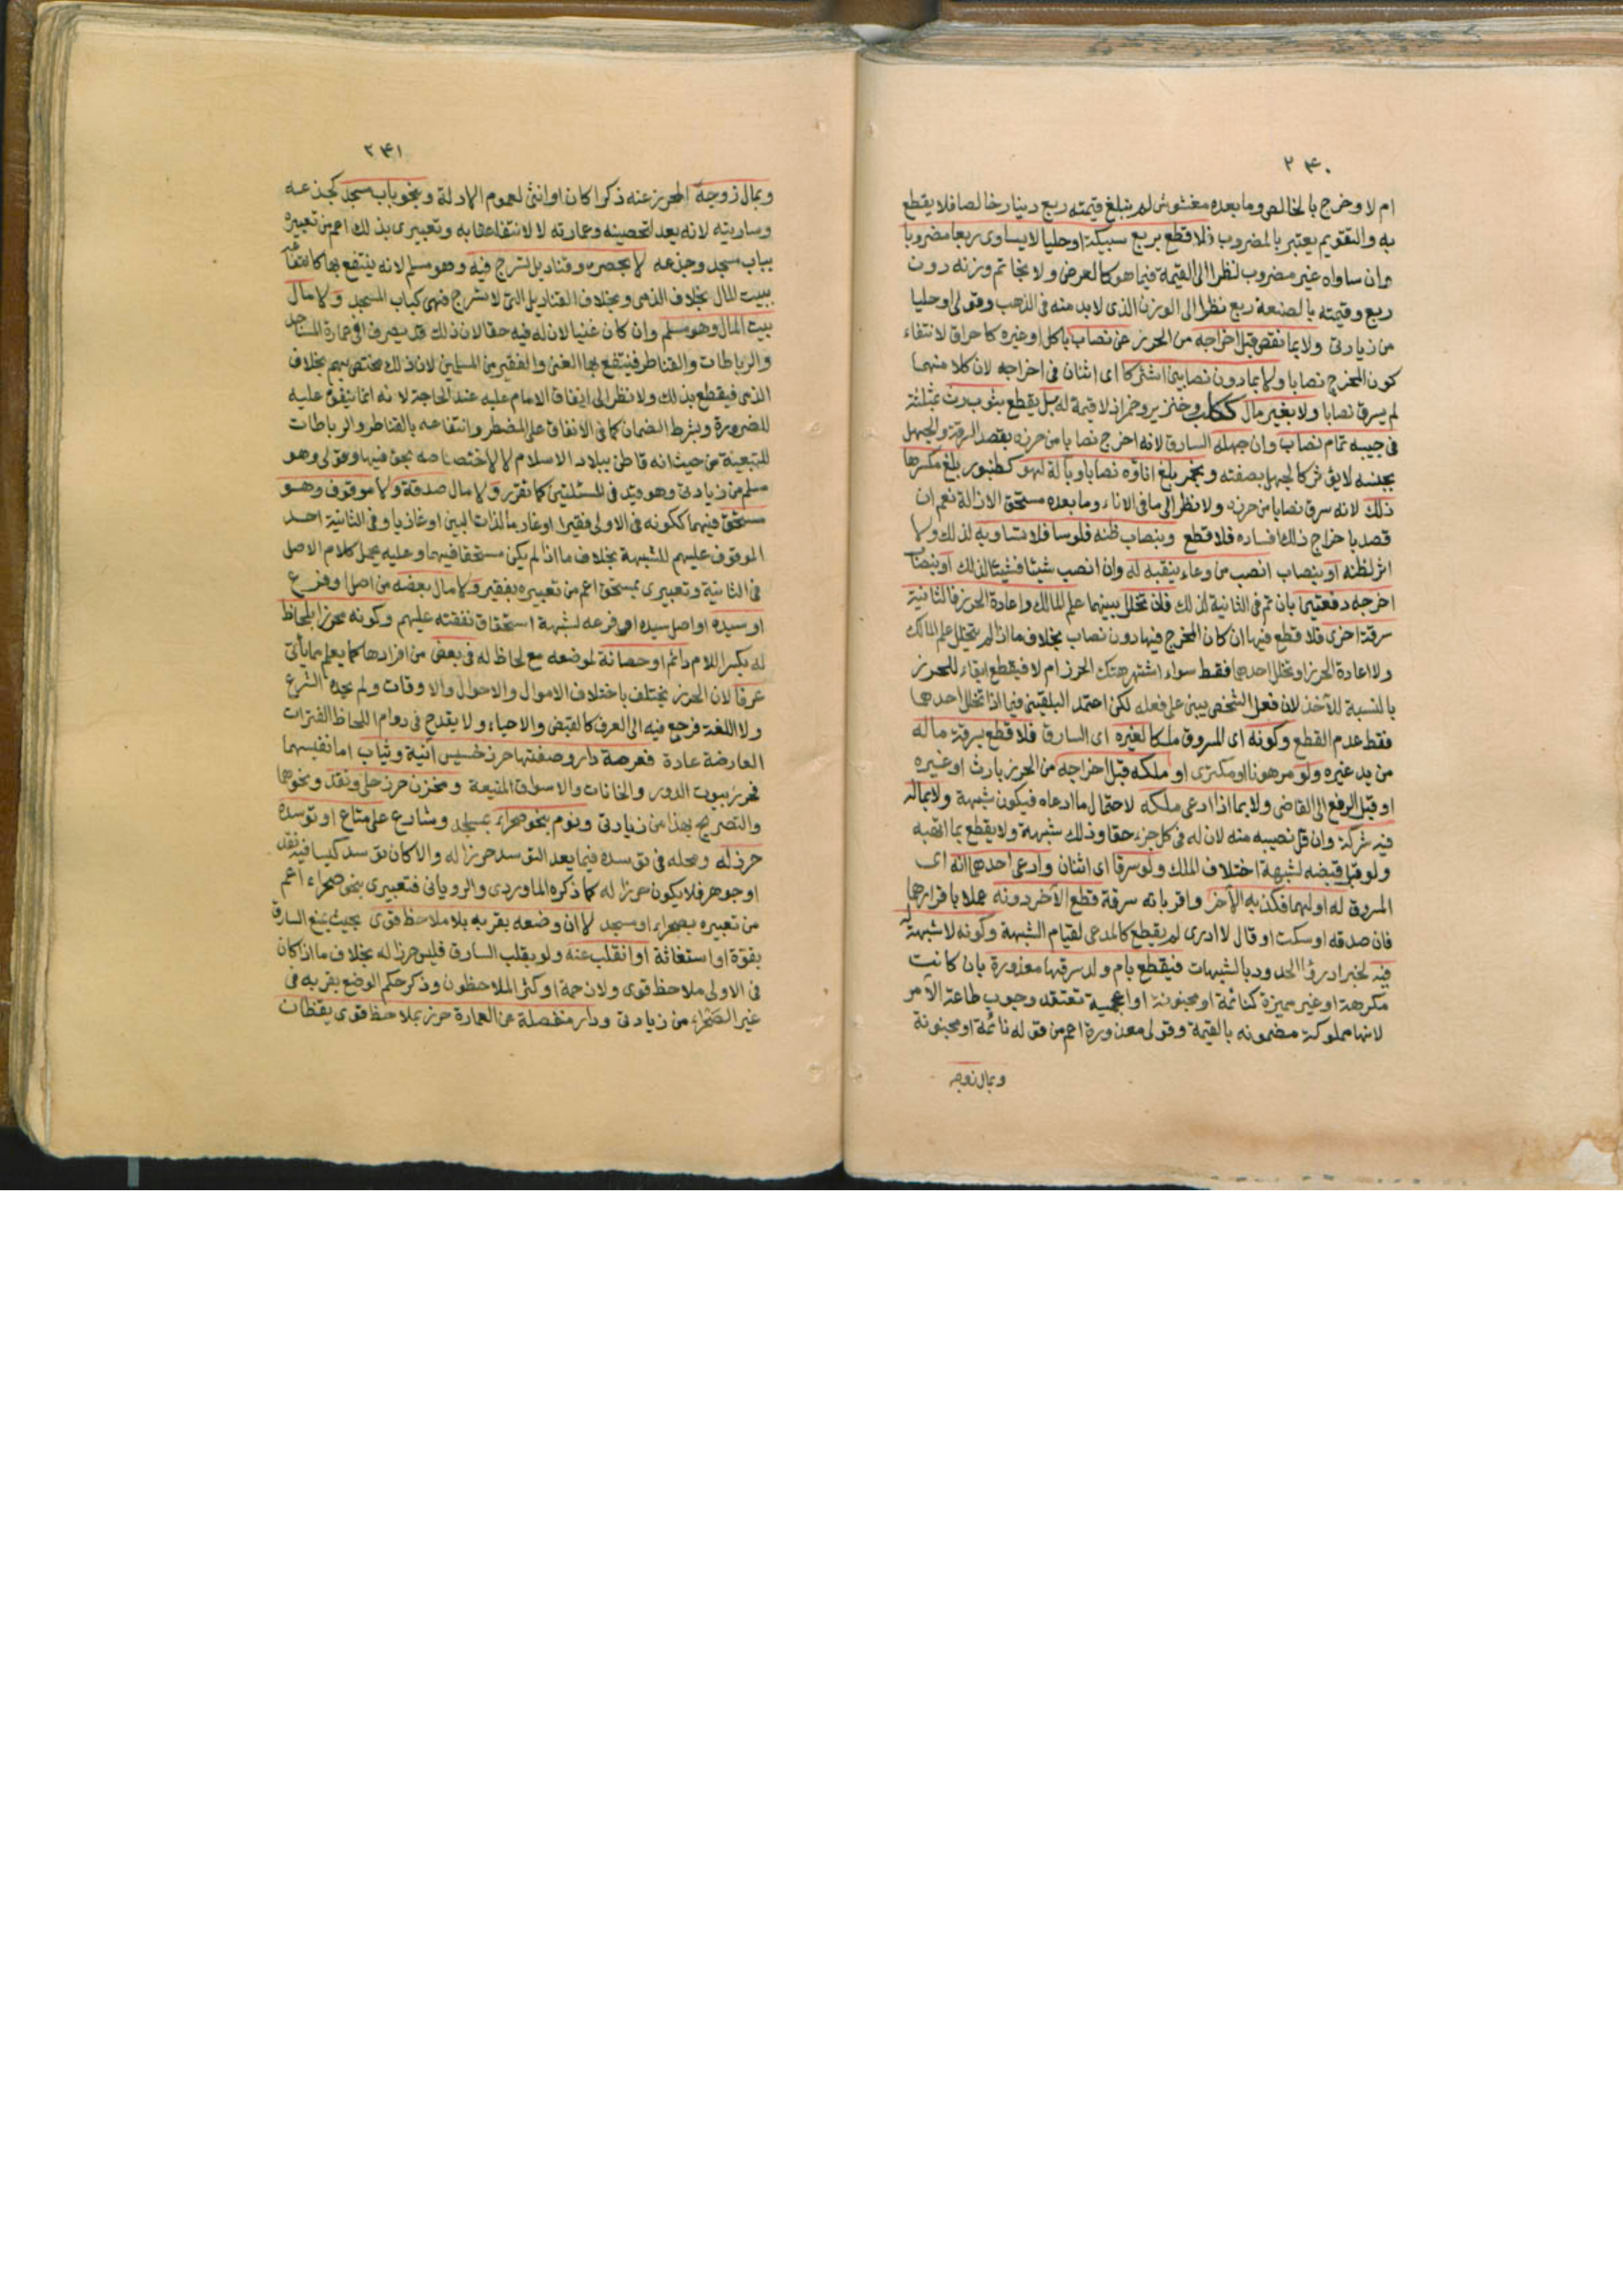 ٢٤٠
ام لا وخرج بالخالص وما بعده مغشوش لم تبلغ قيمته ربع دينار خالصا فلا يقطع
به والتقويم يعتبر بالمضروب فلا قطع بربع سبيكة او حليا لا يساوى ربعا مضروبا
وان ساواه غير مضروب نظرا الى القيمة فيما هو كالعرض ولا بخاتم وزنه دون
ربع وقيمته بالصنعة ربع نظرا الى الوزن الذى لابد منه فى الذهب وقولى او حليا
من زيادتى ولا بما نقص قبل اخراجه من الحرز عن نصاب باكل او غيره كاحراق لانتفاء
كون المخرج نصابا ولا بما دون نصابين اشتركا اى اثنان فى اخراجه لان كلا منهما
لم يسرق نصابا ولا بغير مال ككلب وخنزير وخمر اذ لا قيمة له بل يقطع بثوب رث
فى جيبه تمام نصاب وان جهله السارق لانه اخرج نصابا من حرزه بقصد السرقة والجهل
بجنسه لا يؤثر كالجهل بصفته وبخمر بلغ اناؤه نصابا وبآلة لهو كطنبور بلغ مكسرها
ذلك لانه سرق نصابا من حرزه ولا نظر الى ما فى الاناء وما بعده مستحق الازالة نعم ان
قصد باخراج ذلك افساده فلا قطع وبنصاب ظنه فلوسا فلا تساويه لذلك ولا
اثر لظنه او بنصاب انصب من وعاء بنقبه له وان انصب شيئا فشيئا لذلك او بنصاب
اخرجه دفعتين بان تم فى الثانية لذلك فان تخلل بينهما علم المالك واعادة الحرز فالثانية
سرقة اخرى فلا قطع فيها ان كان المخرج فيها دون نصاب بخلاف ما اذا لم يتخلل علم المالك
ولا اعادة الحرز او تخلل احدهما فقط سواء اشتهر هتك الحرز ام لا فيقطع ابقاء للحرز
بالنسبة للآخذ لان فعل الشخص يبنى على فعله لكن اعتمد البلقينى فيما اذا تخلل احدهما
فقط عدم القطع وكونه اى المسروق ملكا لغيره اى السارق فلا قطع بسرقة ماله
من يد غيره ولو مرهونا او مكترى او ملكه قبل اخراجه من الحرز بارث او غيره
او قبل الرفع الى القاضى ولا بما اذا ادعى ملكه لاحتمال ما ادعاه فيكون شبهة ولا بماله
فيه شركة وان قل نصيبه منه لان له فى كل جزء حقا وذلك شبهة ولا يقطع بما اتهبه
ولو قبل قبضه لشبهة اختلاف الملك ولو سرقا اى اثنان وادعى احدهما انه اى
المسروق له او لهما فكذبه الآخر واقر بانه سرقة قطع الآخر دونه عملا باقرارهما
فان صدقه او سكت او قال لا ادرى لم يقطع كالمدعى لقيام الشبهة وكونه لا شبهة له
فيه لخبر ادرؤا الحدود بالشبهات فيقطع بام ولد سرقها معذورة بان كانت
مكرهة او غير مميزة كنائمة او مجنونة او اعجمية تعتقد وجوب طاعة الآمر
لانها مملوكة مضمونه بالقيمة وقولى معذورة اعم من قوله نائمة او مجنونة
وبمال زوجه
٢٤١
وبمال زوجه المحرز عنه ذكرا كان او انثى لعموم الادلة وبنحو باب مسجد كجذعه
وساريته لانه يعد لتحصينه وعمارته لا لانتفاعنا به وتعبيرى بذلك اعم من تعبيره
بباب مسجد وجذعه لا بحصره وقناديل تسرج فيه وهو مسلم لانه ينتفع بها كانتفاعه
ببيت المال بخلاف الذمى وبخلاف القناديل التى لا تسرج فهى كباب المسجد ولا مال
بيت المال وهو مسلم وان كان غنيا لان له فيه حقا لان ذلك قد يصرف فى عمارة المساجد
والرباطات والقناطر فينتفع بها الغنى والفقير من المسلمين لان ذلك مختص بهم بخلاف
الذمى فيقطع بذلك ولا نظر الى انفاق الامام عليه عند الحاجة لانه انما ينفق عليه
للضرورة وبشرط الضمان كما فى الانفاق على المضطر وانتفاعه بالقناطر والرباطات
للتبعية من حيث انه قاطن ببلاد الاسلام لا لاختصاصه بحق فيها وقولى وهو
مسلم من زيادتى وهو قيد فى المسئلتين كما تقرر ولا مال صدقة ولا موقوف وهو
مستحق فيهما ككونه فى الاولى فقيرا او غارما لذات البين او غازيا وفى الثانية احد
الموقوف عليهم للشبهة بخلاف ما اذا لم يكن مستحقا فيهما وعليه يحمل كلام الاصل
فى الثانية وتعبيرى بمستحق اعم من تعبيره بفقير ولا مال بعضه من اصل او فرع
او سيده او اصل سيده او فرعه لشبهة استحقاق نفقته عليهم وكونه محرزا بلحاظ
له بكسر اللام دائم او حصانة لموضعه مع لحاظ له فى بعض من افرادها كما يعلم مما يأتى
عرفا لان الحرز يختلف باختلاف الاموال والاحوال والاوقات ولم يحده الشرع
ولا اللغة فرجع فيه الى العرف كالقبض والاحياء ولا يقدح فى دوام اللحاظ الفترات
العارضة عادة فعرصة دار وصفتها حرز خسيس آنية وثياب اما نفيسهما
فحرزه بيوت الدور والخانات والاسواق المنيعة ومخزن حرز حلى ونقد ونحوهما
والتصريح بهذا من زيادتى ونوم بنحو صحراء كمسجد وشارع على متاع او توسده
حرز له ومحله فى توسده فيما يعد التوسد حرزا له والا كان توسد كيسا فيه نقد
او جوهر فلا يكون حرزا له كما ذكره الماوردى والرويانى فتعبيرى بنحو صحراء اعم
من تعبيره بصحراء او مسجد لا ان وضعه بقربه بلا ملاحظ قوى بحيث يمنع السارق
بقوة او استغاثة او انقلب عنه ولو بقلب السارق فليس حرزا له بخلاف ما اذا كان
فى الاولى ملاحظ قوى ولا زحمة او كثر الملاحظون وذكر حكم الوضع بقربه فى
غير الصحراء من زيادتى ودار منفصلة عن العمارة حرز بملاحظ قوى يقظان